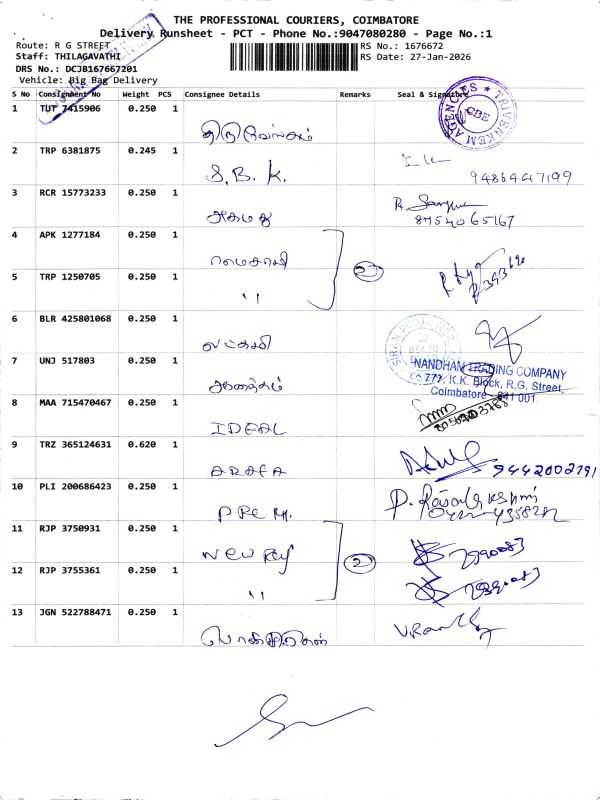 THE PROFESSIONAL COURIERS, COIMBATORE
Delivery Runsheet - PCT - Phone No.:9047080280 - Page No.:1
Route: R G STREET
RS No.: 1676672
Staff: THILAGAVATHI
RS Date: 27-Jan-2026
DRS No.: DCJB167667201
Vehicle: Big Bag Delivery
S No Consignment No Weight PCS Consignee Details Remarks Seal & Signature
TRIVENKEM AGENCIES * CBE
1 TUT 7415906 0.250 1
2 TRP 6381875 0.245 1 S.B.K. 9486447199
3 RCR 15773233 0.250 1 அகமது 8754065167
4 APK 1277184 0.250 1 ராமசாமி
2
5 TRP 1250705 0.250 1 "
6 BLR 425801068 0.250 1 லட்சுமி
7 UNJ 517803 0.250 1
NANDHAM TRADING COMPANY
K.K. Block, R.G. Street,
Coimbatore - 641 001
8 MAA 715470467 0.250 1 IDEAL
9 TRZ 365124631 0.620 1 ARAFA 9442002791
10 PLI 200686423 0.250 1 PREM.
11 RJP 3750931 0.250 1 New Ray
2
12 RJP 3755361 0.250 1 "
13 JGN 522788471 0.250 1